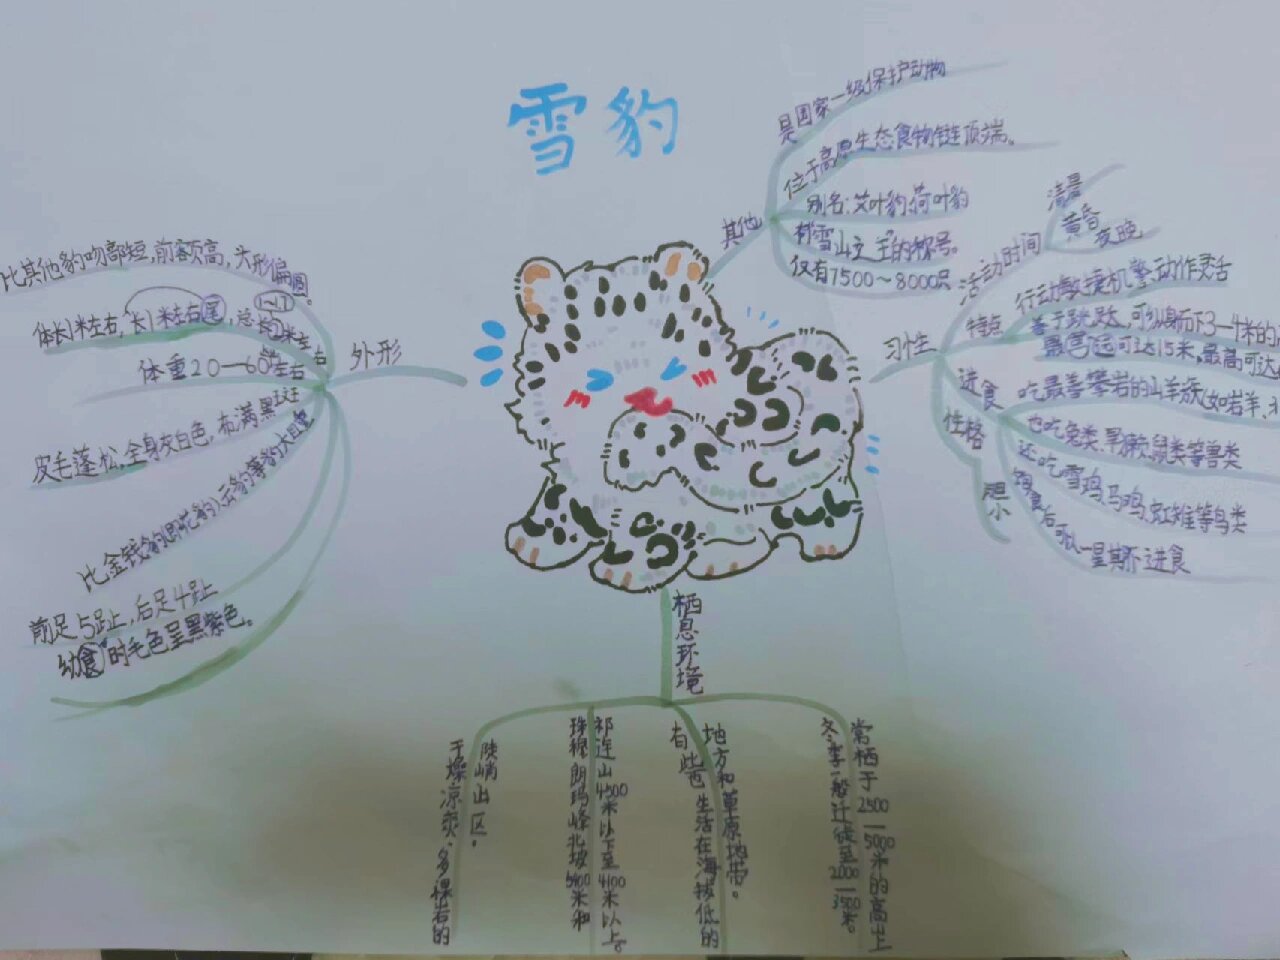 雪豹
外形
比其他豹吻部短,前额高,头形偏圆。
体长1米左右,长1米左右尾,总长2米左右
体重20—60
左右
皮毛蓬松,全身灰白色,布满黑斑
比金钱豹(即花豹)云豹等豹大
前足5趾,后足4趾
幼食时毛色呈黑紫色。
其他
是国家一级保护动物
位于高原生态食物链顶端。
别名:艾叶豹,荷叶豹
雪山之王的称号。
仅有7500~8000只
习性
活动时间
清晨
黄昏
夜晚
特点
行动敏捷机警,动作灵活
善于跳跃,可纵身而下3—4米的
最远可达15米,最高可达
进食
吃最善攀岩的山羊族(如岩羊、
也吃兔类、旱獭、鼠类等兽类
还吃雪鸡,马鸡,虹雉等鸟类
饱食后可以一星期不进食
性格
胆小
栖息环境
干燥凉爽、多裸岩的
陡峭山区。
珠穆朗玛峰北坡5400米和
祁连山4500米以下至4100米以上。
有些也生活在海拔低的
地方和草原地带。
常栖于2500—5000米的高山
冬季一般迁徙至2000—3500米。